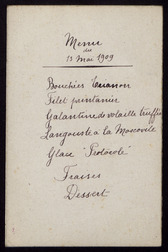 Menu
du
13 Mai 1909
Bouchées
Filet printanier
Galantine de volaille truffée
Langouste à la Moscovite
Glace "Protocole"
Fraises
Dessert